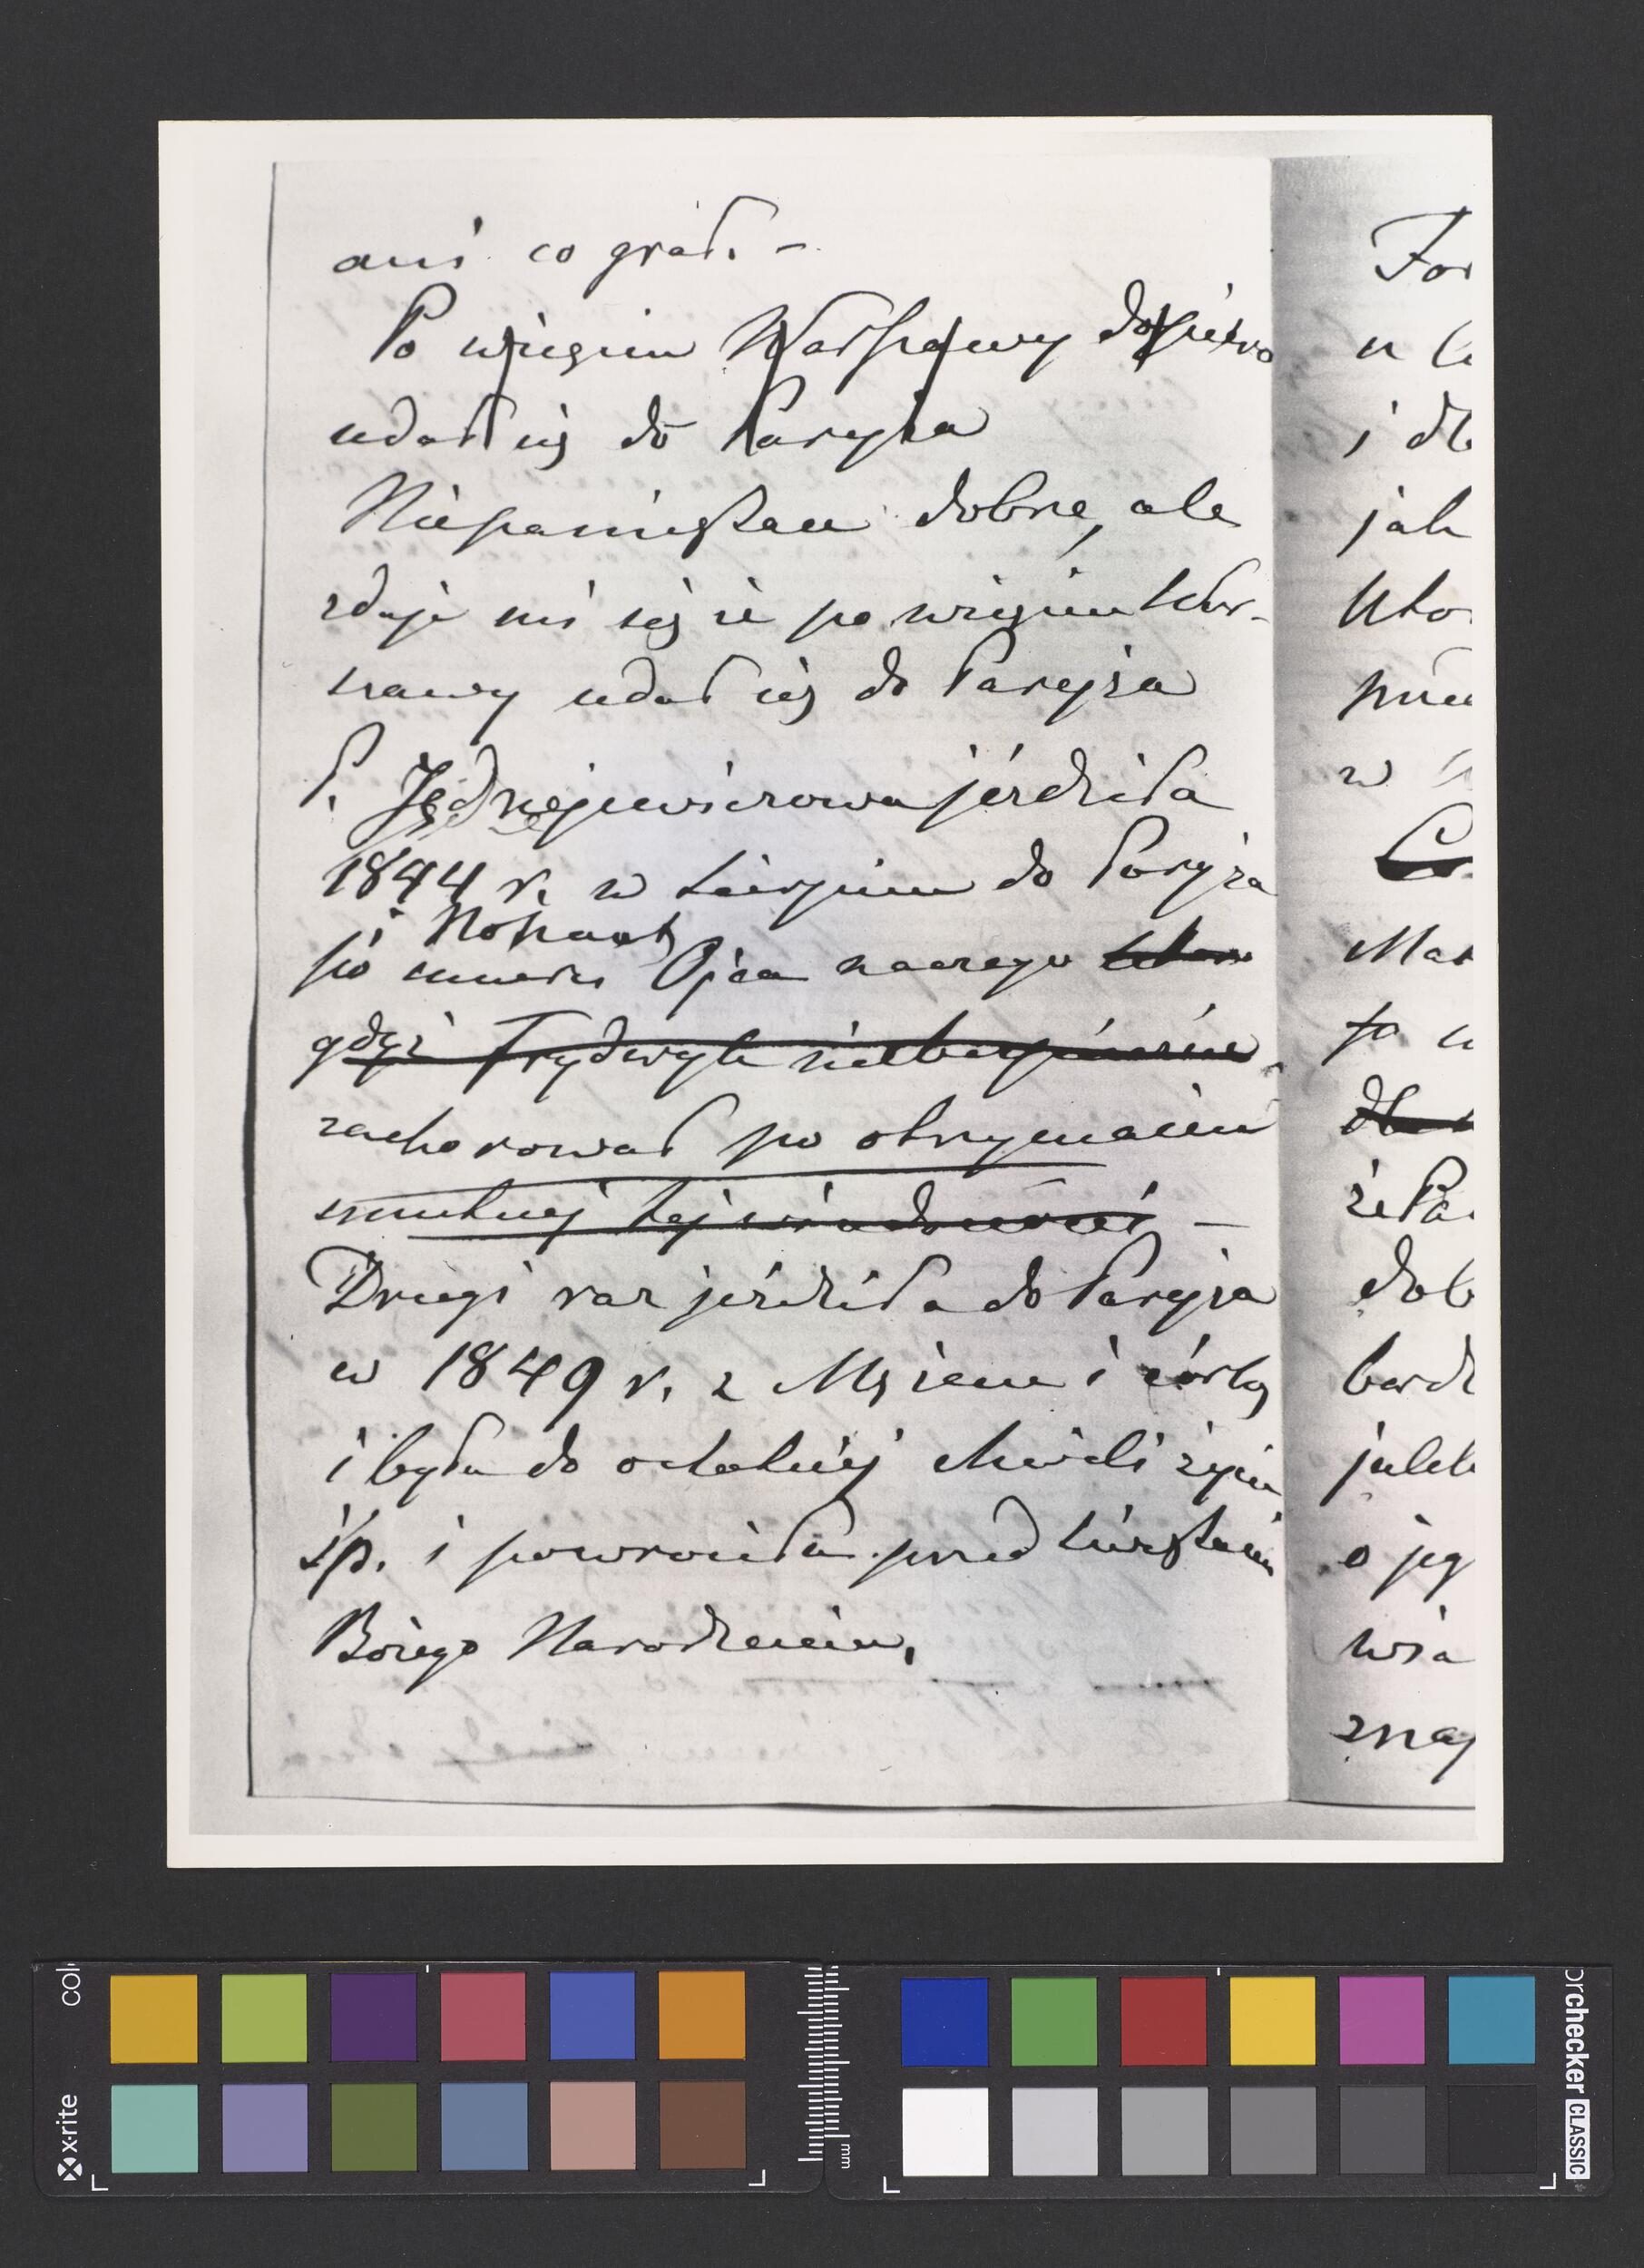 ani co grał. –
Po wzięciu Warszawy dopiero
udał się do Paryża
Niepamiętam dobrze, ale
zdaje mi się że po wzięciu War-
szawy udał się do Paryża
P. Jędrzejewiczowa jéździła
1844 r. w Sierpniu do Paryża
i Nohant
po śmierci Ojca naszego
gdyż Fryderyk niebezpiecznie
zachorował po otrzymaniu
smutnej tej wiadomości –
Drugi raz jéździła do Paryża
w 1849 r. z Mężem i córką
i była do ostatniéj chwili życia
śp. i powróciła przed Świętami
Bożego Narodzenia.
For
u
i dla
jak
Kto
prze
w
Mat
ta
że Pa
dob
bard
o jeg
wia
znaj
x-rite
col
mm
orchecker CLASSIC